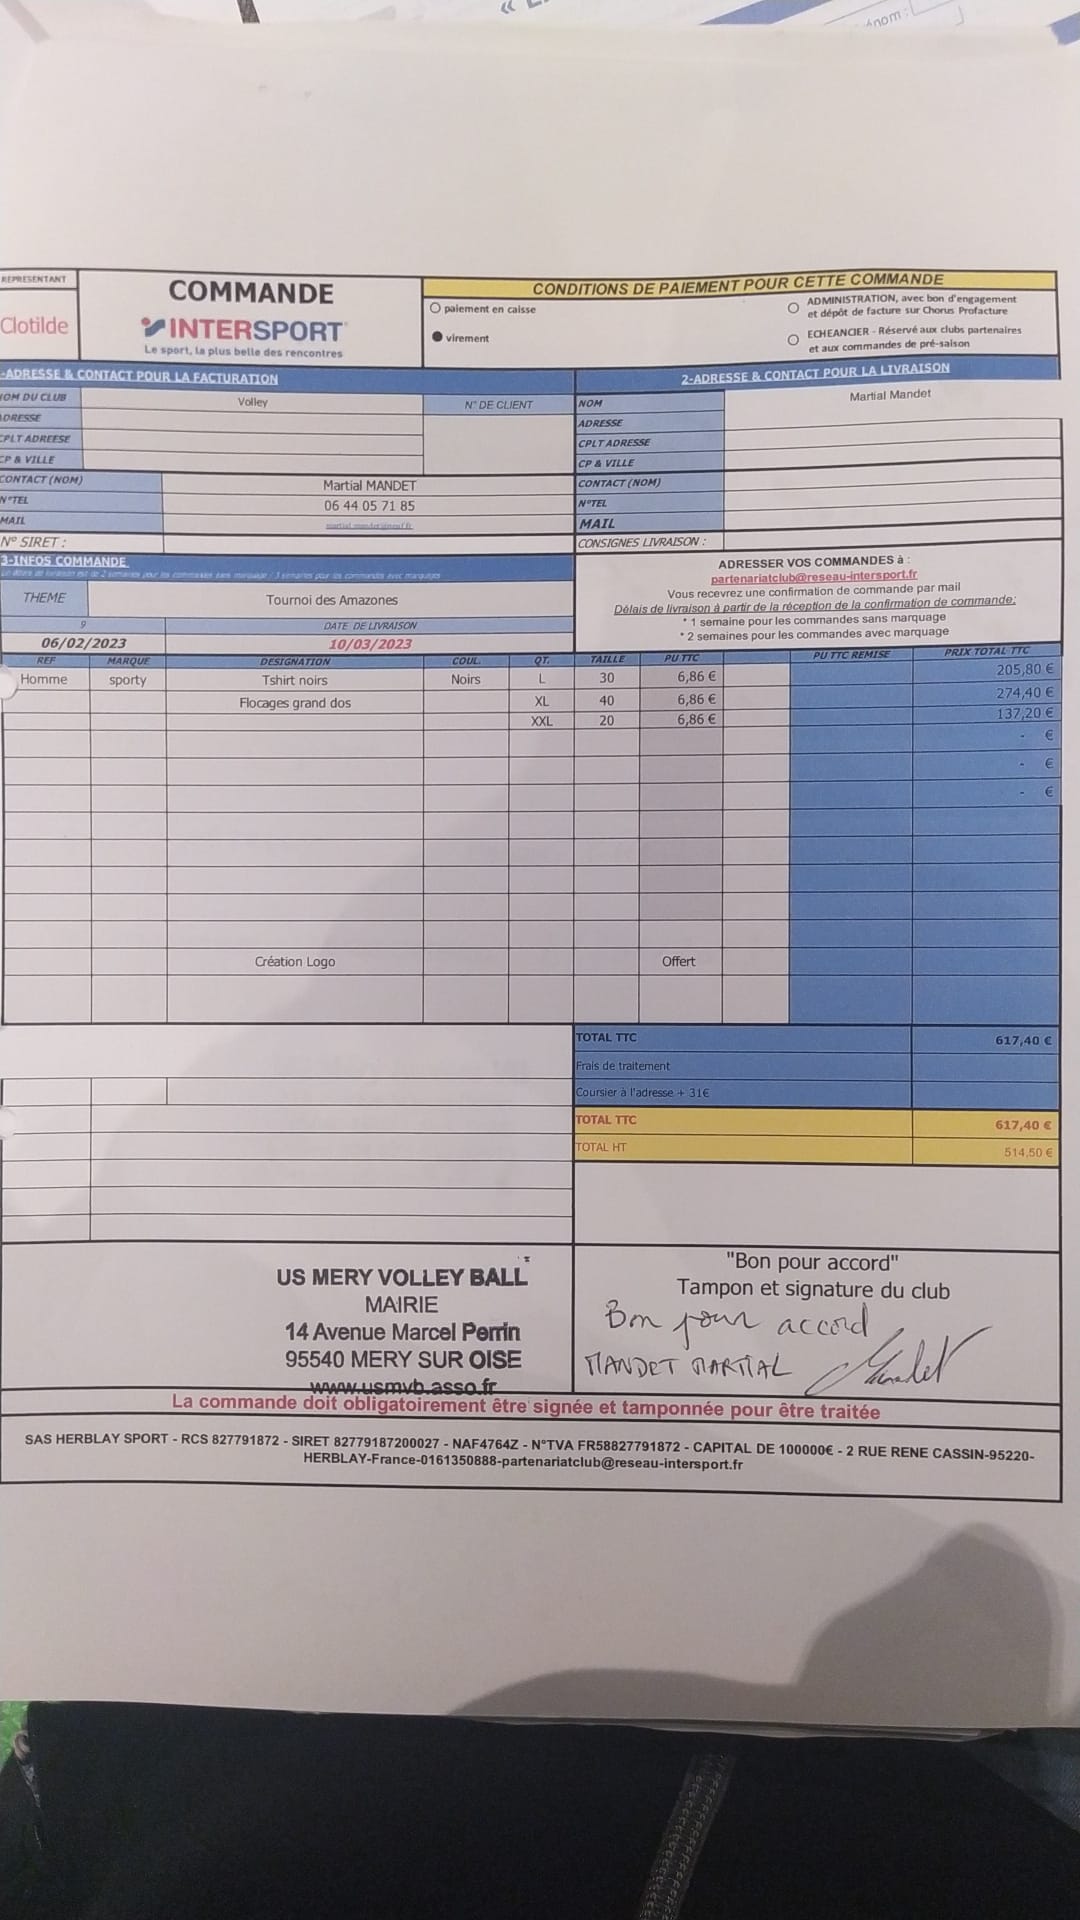 REPRESENTANT
Clotilde
COMMANDE
INTERSPORT
Le sport, la plus belle des rencontres
CONDITIONS DE PAIEMENT POUR CETTE COMMANDE
paiement en caisse
virement
ADMINISTRATION, avec bon d'engagement
et dépôt de facture sur Chorus Profacture
ECHEANCIER - Réservé aux clubs partenaires
et aux commandes de pré-saison
-ADRESSE & CONTACT POUR LA FACTURATION
2-ADRESSE & CONTACT POUR LA LIVRAISON
NOM DU CLUB Volley N° DE CLIENT
ADRESSE
CPLT ADREESE
CP & VILLE
CONTACT (NOM) Martial MANDET
N°TEL 06 44 05 71 85
MAIL martial.mandet@neuf.fr
N° SIRET :
NOM Martial Mandet
ADRESSE
CPLT ADRESSE
CP & VILLE
CONTACT (NOM)
N°TEL
MAIL
CONSIGNES LIVRAISON :
3-INFOS COMMANDE
délais de livraison est de 2 semaines pour les commandes sans marquage / 3 semaines pour les commandes avec marquages
THEME Tournoi des Amazones
9 DATE DE LIVRAISON
06/02/2023 10/03/2023
ADRESSER VOS COMMANDES à :
partenariatclub@reseau-intersport.fr
Vous recevrez une confirmation de commande par mail
Délais de livraison à partir de la réception de la confirmation de commande:
* 1 semaine pour les commandes sans marquage
* 2 semaines pour les commandes avec marquage
REF MARQUE DESIGNATION COUL. QT. TAILLE PU TTC PU TTC REMISE PRIX TOTAL TTC
Homme sporty Tshirt noirs Noirs L 30 6,86 € 205,80 €
Flocages grand dos XL 40 6,86 € 274,40 €
XXL 20 6,86 € 137,20 €
- €
- €
- €
Création Logo Offert
TOTAL TTC 617,40 €
Frais de traitement
Coursier à l'adresse + 31€
TOTAL TTC 617,40 €
TOTAL HT 514,50 €
US MERY VOLLEY BALL
MAIRIE
14 Avenue Marcel Perrin
95540 MERY SUR OISE
www.usmvb.asso.fr
"Bon pour accord"
Tampon et signature du club
Bon pour accord
MANDET MARTIAL Mandet
La commande doit obligatoirement être signée et tamponnée pour être traitée
SAS HERBLAY SPORT - RCS 827791872 - SIRET 82779187200027 - NAF4764Z - N°TVA FR58827791872 - CAPITAL DE 100000€ - 2 RUE RENE CASSIN-95220-
HERBLAY-France-0161350888-partenariatclub@reseau-intersport.fr